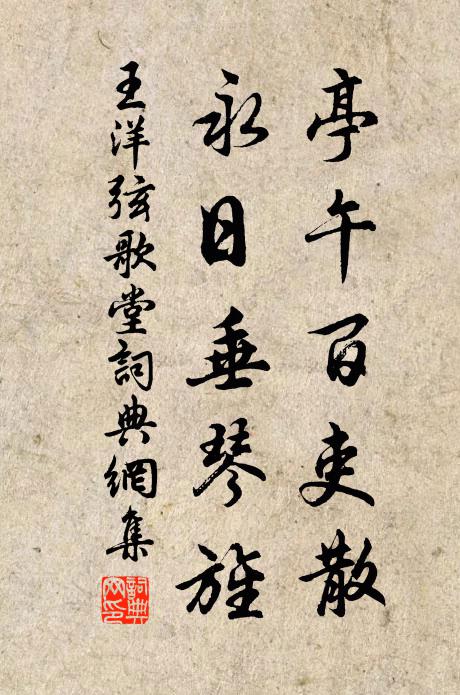 亭午百吏散
永日垂琴旌
王洋弦歌堂詞典網集
詞典網印